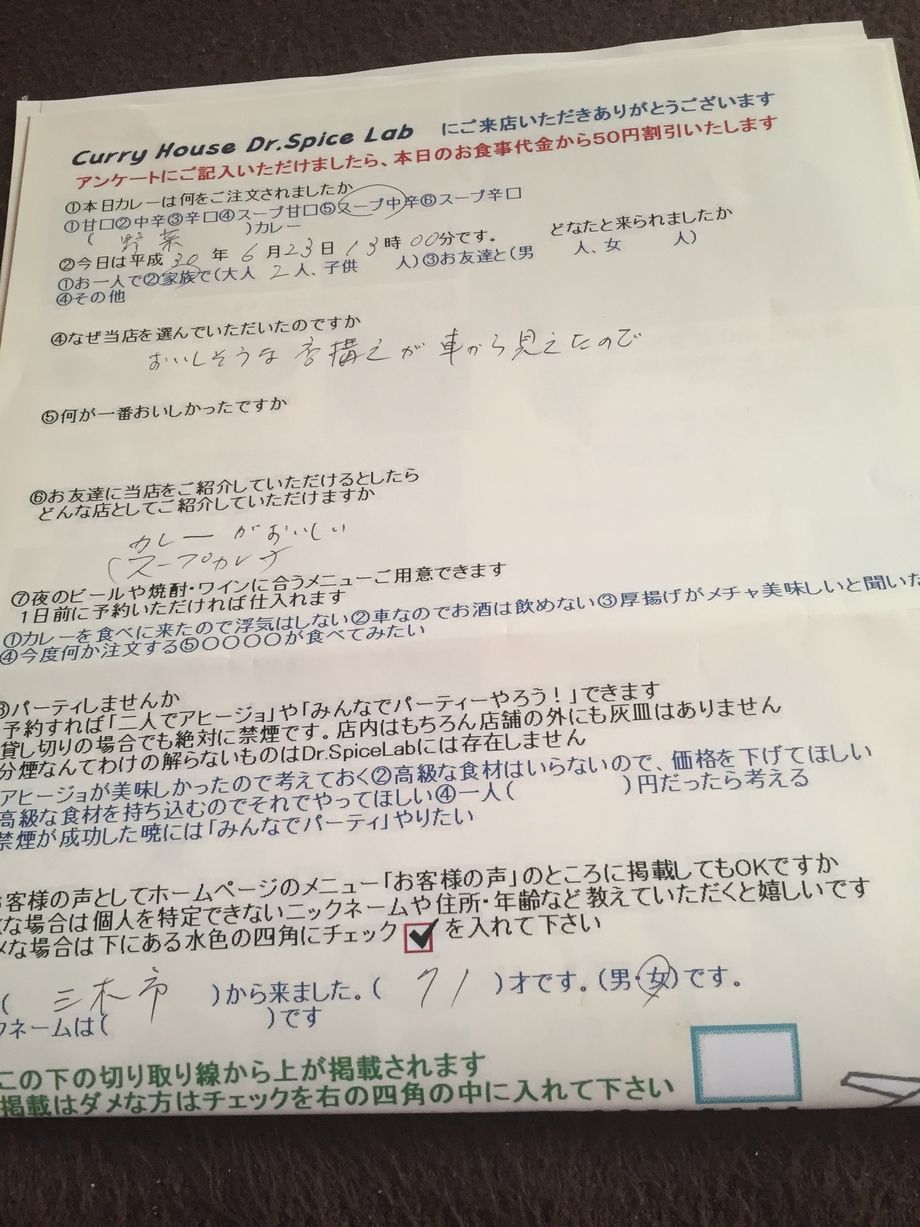 Curry House Dr.Spice Lab にご来店いただきありがとうございます
アンケートにご記入いただけましたら、本日のお食事代金から50円割引いたします
①本日カレーは何をご注文されましたか
①甘口②中辛③辛口④スープ甘口⑤スープ中辛⑥スープ辛口
( 野菜 )カレー
②今日は平成 30 年 6 月 23 日 13 時 00 分です。 どなたと来られましたか
①お一人で②家族で(大人 2 人、子供 人)③お友達と(男 人、女 人)
④その他
④なぜ当店を選んでいただいたのですか
おいしそうな 店構えが 車から見えたので
⑤何が一番おいしかったですか
⑥お友達に当店をご紹介していただけるとしたら
どんな店としてご紹介していただけますか
カレーがおいしい
(スープカレー)
⑦夜のビールや焼酎・ワインに合うメニューご用意できます
1日前に予約いただければ仕入れます
①カレーを食べに来たので浮気はしない②車なのでお酒は飲めない③厚揚げがメチャ美味しいと聞いた
④今度何か注文する⑤〇〇〇〇が食べてみたい
パーティしませんか
予約すれば「二人でアヒージョ」や「みんなでパーティーやろう!」できます
貸し切りの場合でも絶対に禁煙です。店内はもちろん店舗の外にも灰皿はありません
分煙なんてわけの解らないものはDr.SpiceLabには存在しません
アヒージョが美味しかったので考えておく②高級な食材はいらないので、価格を下げてほしい
高級な食材を持ち込むのでそれでやってほしい④一人( )円だったら考える
禁煙が成功した暁には「みんなでパーティ」やりたい
お客様の声としてホームページのメニュー「お客様の声」のところに掲載してもOKですか
な場合は個人を特定できないニックネームや住所・年齢など教えていただくと嬉しいです
メな場合は下にある水色の四角にチェック を入れて下さい
( 三木市 )から来ました。( 71 )才です。(男・女)です。
クネームは( )です
この下の切り取り線から上が掲載されます
掲載はダメな方はチェックを右の四角の中に入れて下さい